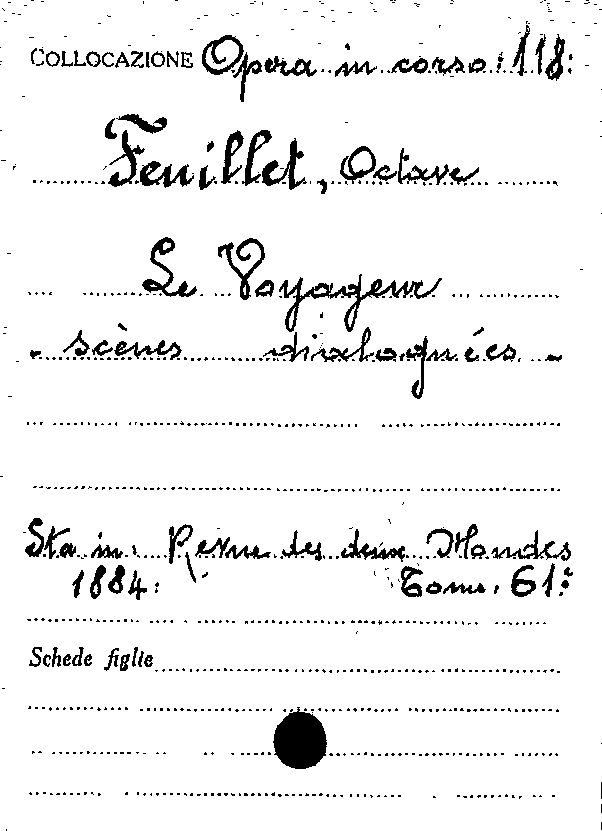 COLLOCAZIONE Opera in corso: 118:
Feuillet, Octave
Le Voyageur
- scènes dialoguées -
Sta in: Revue des deux Mondes
1884: Tome. 61:
Schede figlie